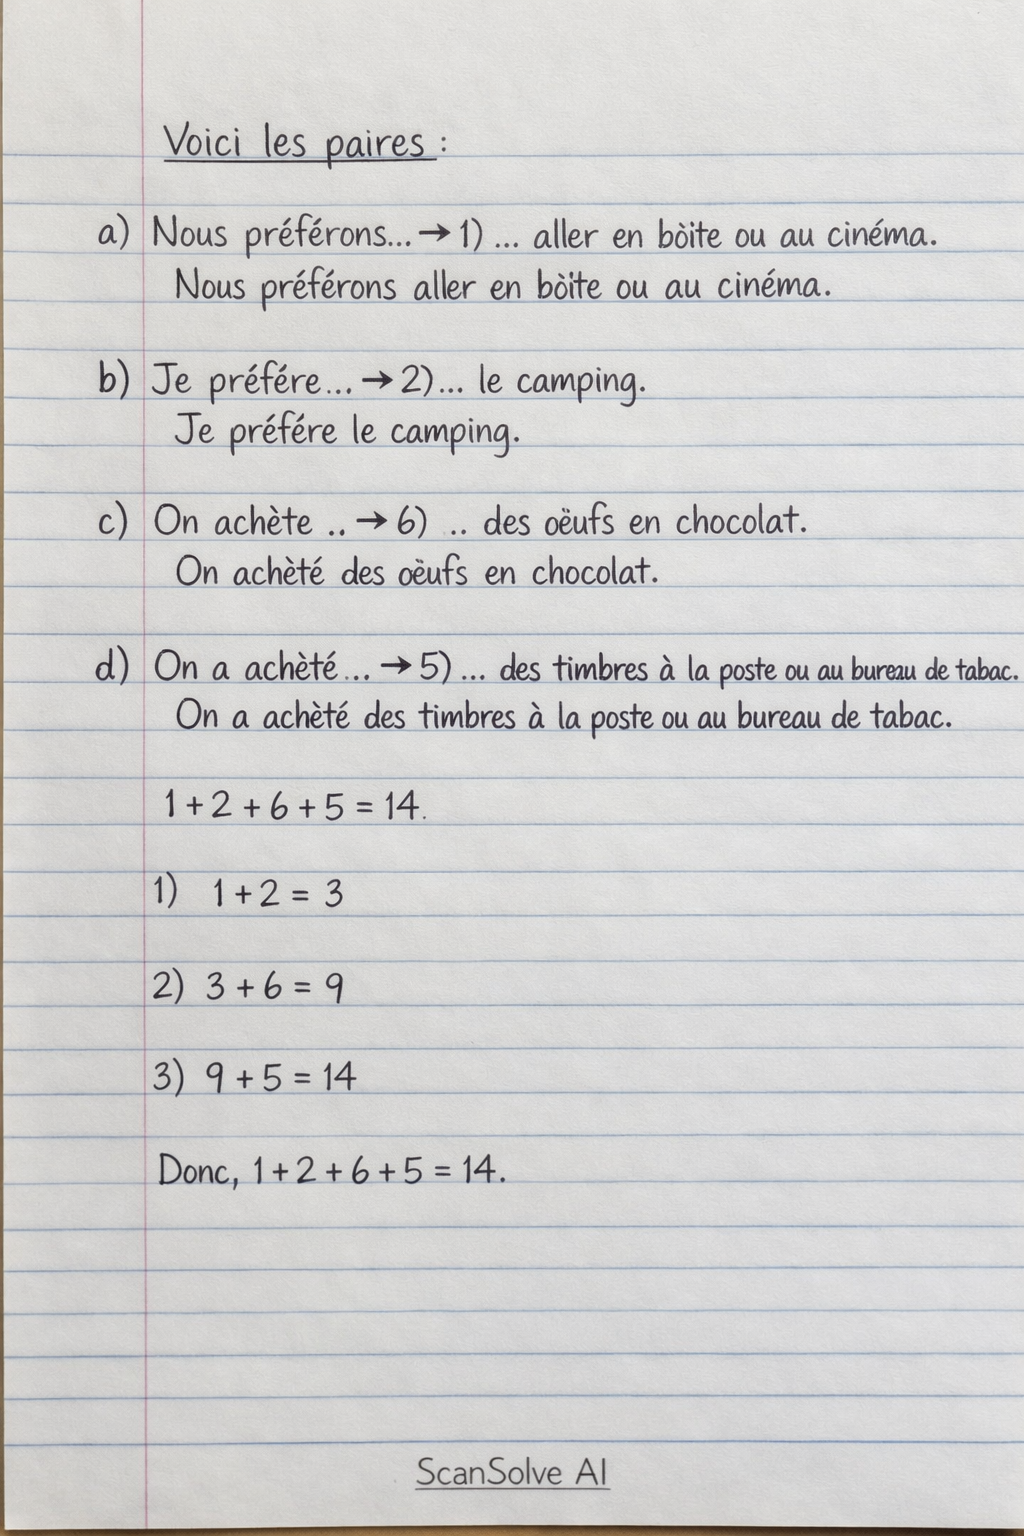 Voici les paires :
a) Nous préférons... → 1) ... aller en bòite ou au cinéma.
Nous préférons aller en bòite ou au cinéma.
b) Je préfére... → 2)... le camping.
Je préfére le camping.
c) On achète .. → 6) .. des oëufs en chocolat.
On achèté des oëufs en chocolat.
d) On a achèté... → 5) ... des timbres à la poste ou au bureau de tabac.
On a achèté des timbres à la poste ou au bureau de tabac.
1 + 2 + 6 + 5 = 14.
1) 1 + 2 = 3
2) 3 + 6 = 9
3) 9 + 5 = 14
Donc, 1 + 2 + 6 + 5 = 14.
ScanSolve AI